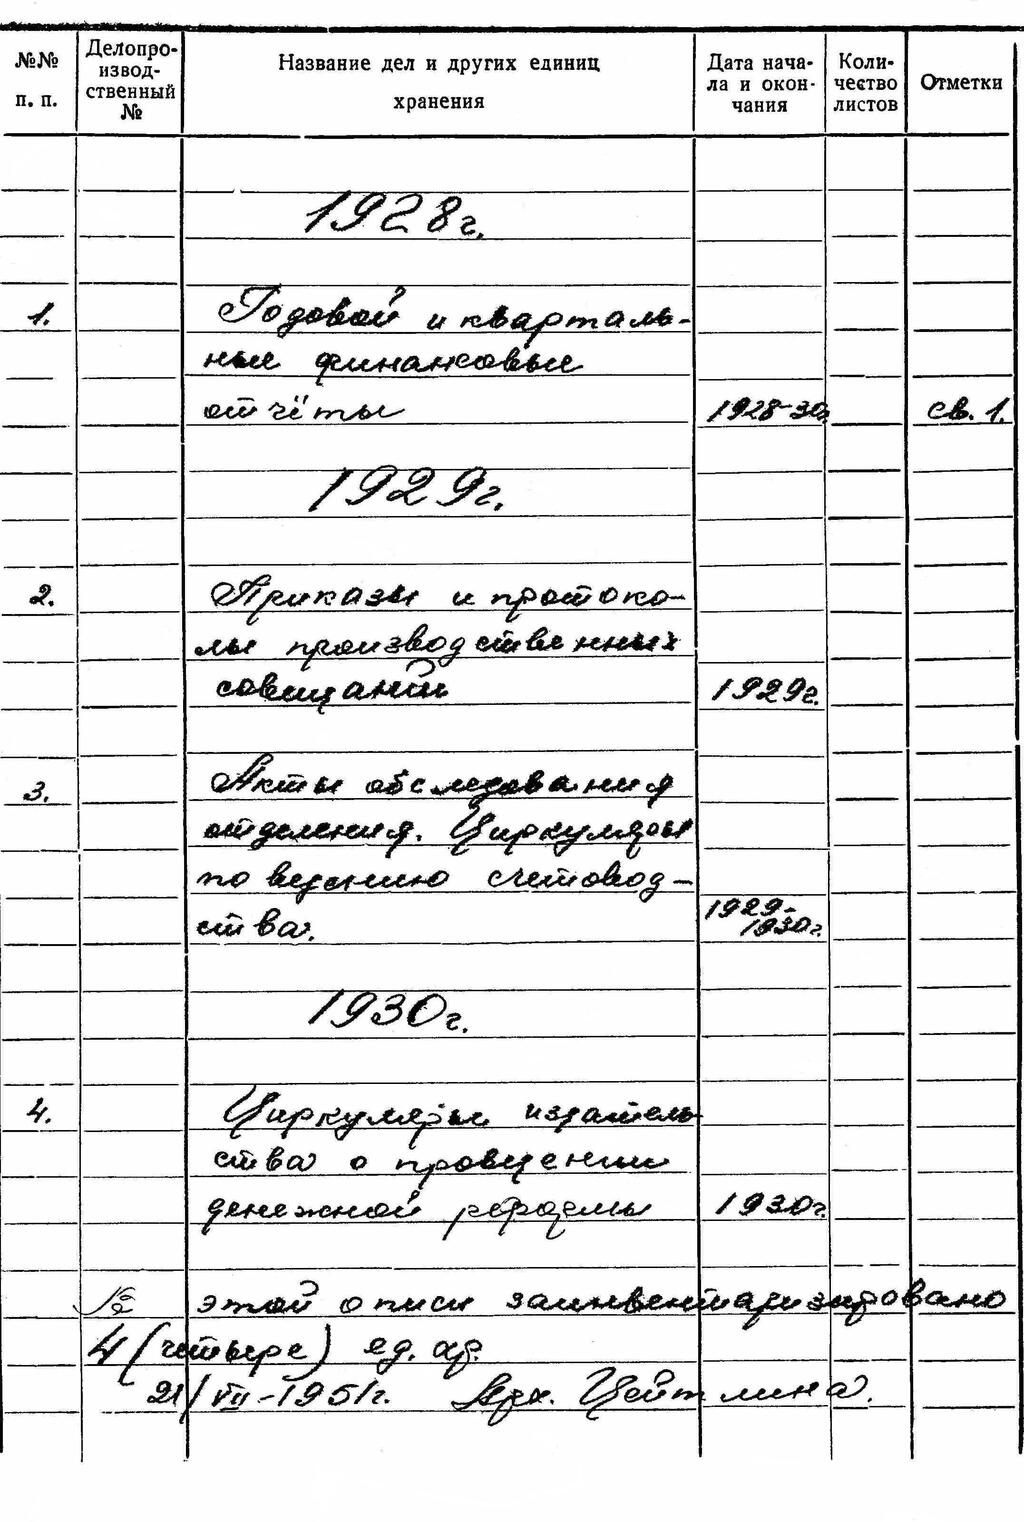 №№ п. п.
Делопро-
извод-
ственный
№
Название дел и других единиц
хранения
Дата нача-
ла и окон-
чания
Коли-
чество
листов
Отметки
1928 г.
1. Годовой и кварталь-
ные финансовые
отчёты 1928-30г. св. 1.
1929 г.
2. Приказы и протоко-
лы производственных
совещаний 1929 г.
3. Акты обследования
отделения. Циркуляры
по ведению счетовод-
ства. 1929-
1930 г.
1930 г.
4. Циркуляры издатель-
ства о проведении
денежной реформы 1930 г.
В этой описи заинвентаризировано
4 (четыре) ед. хр.
21/VII-1951 г. Арх. Цейтлина.